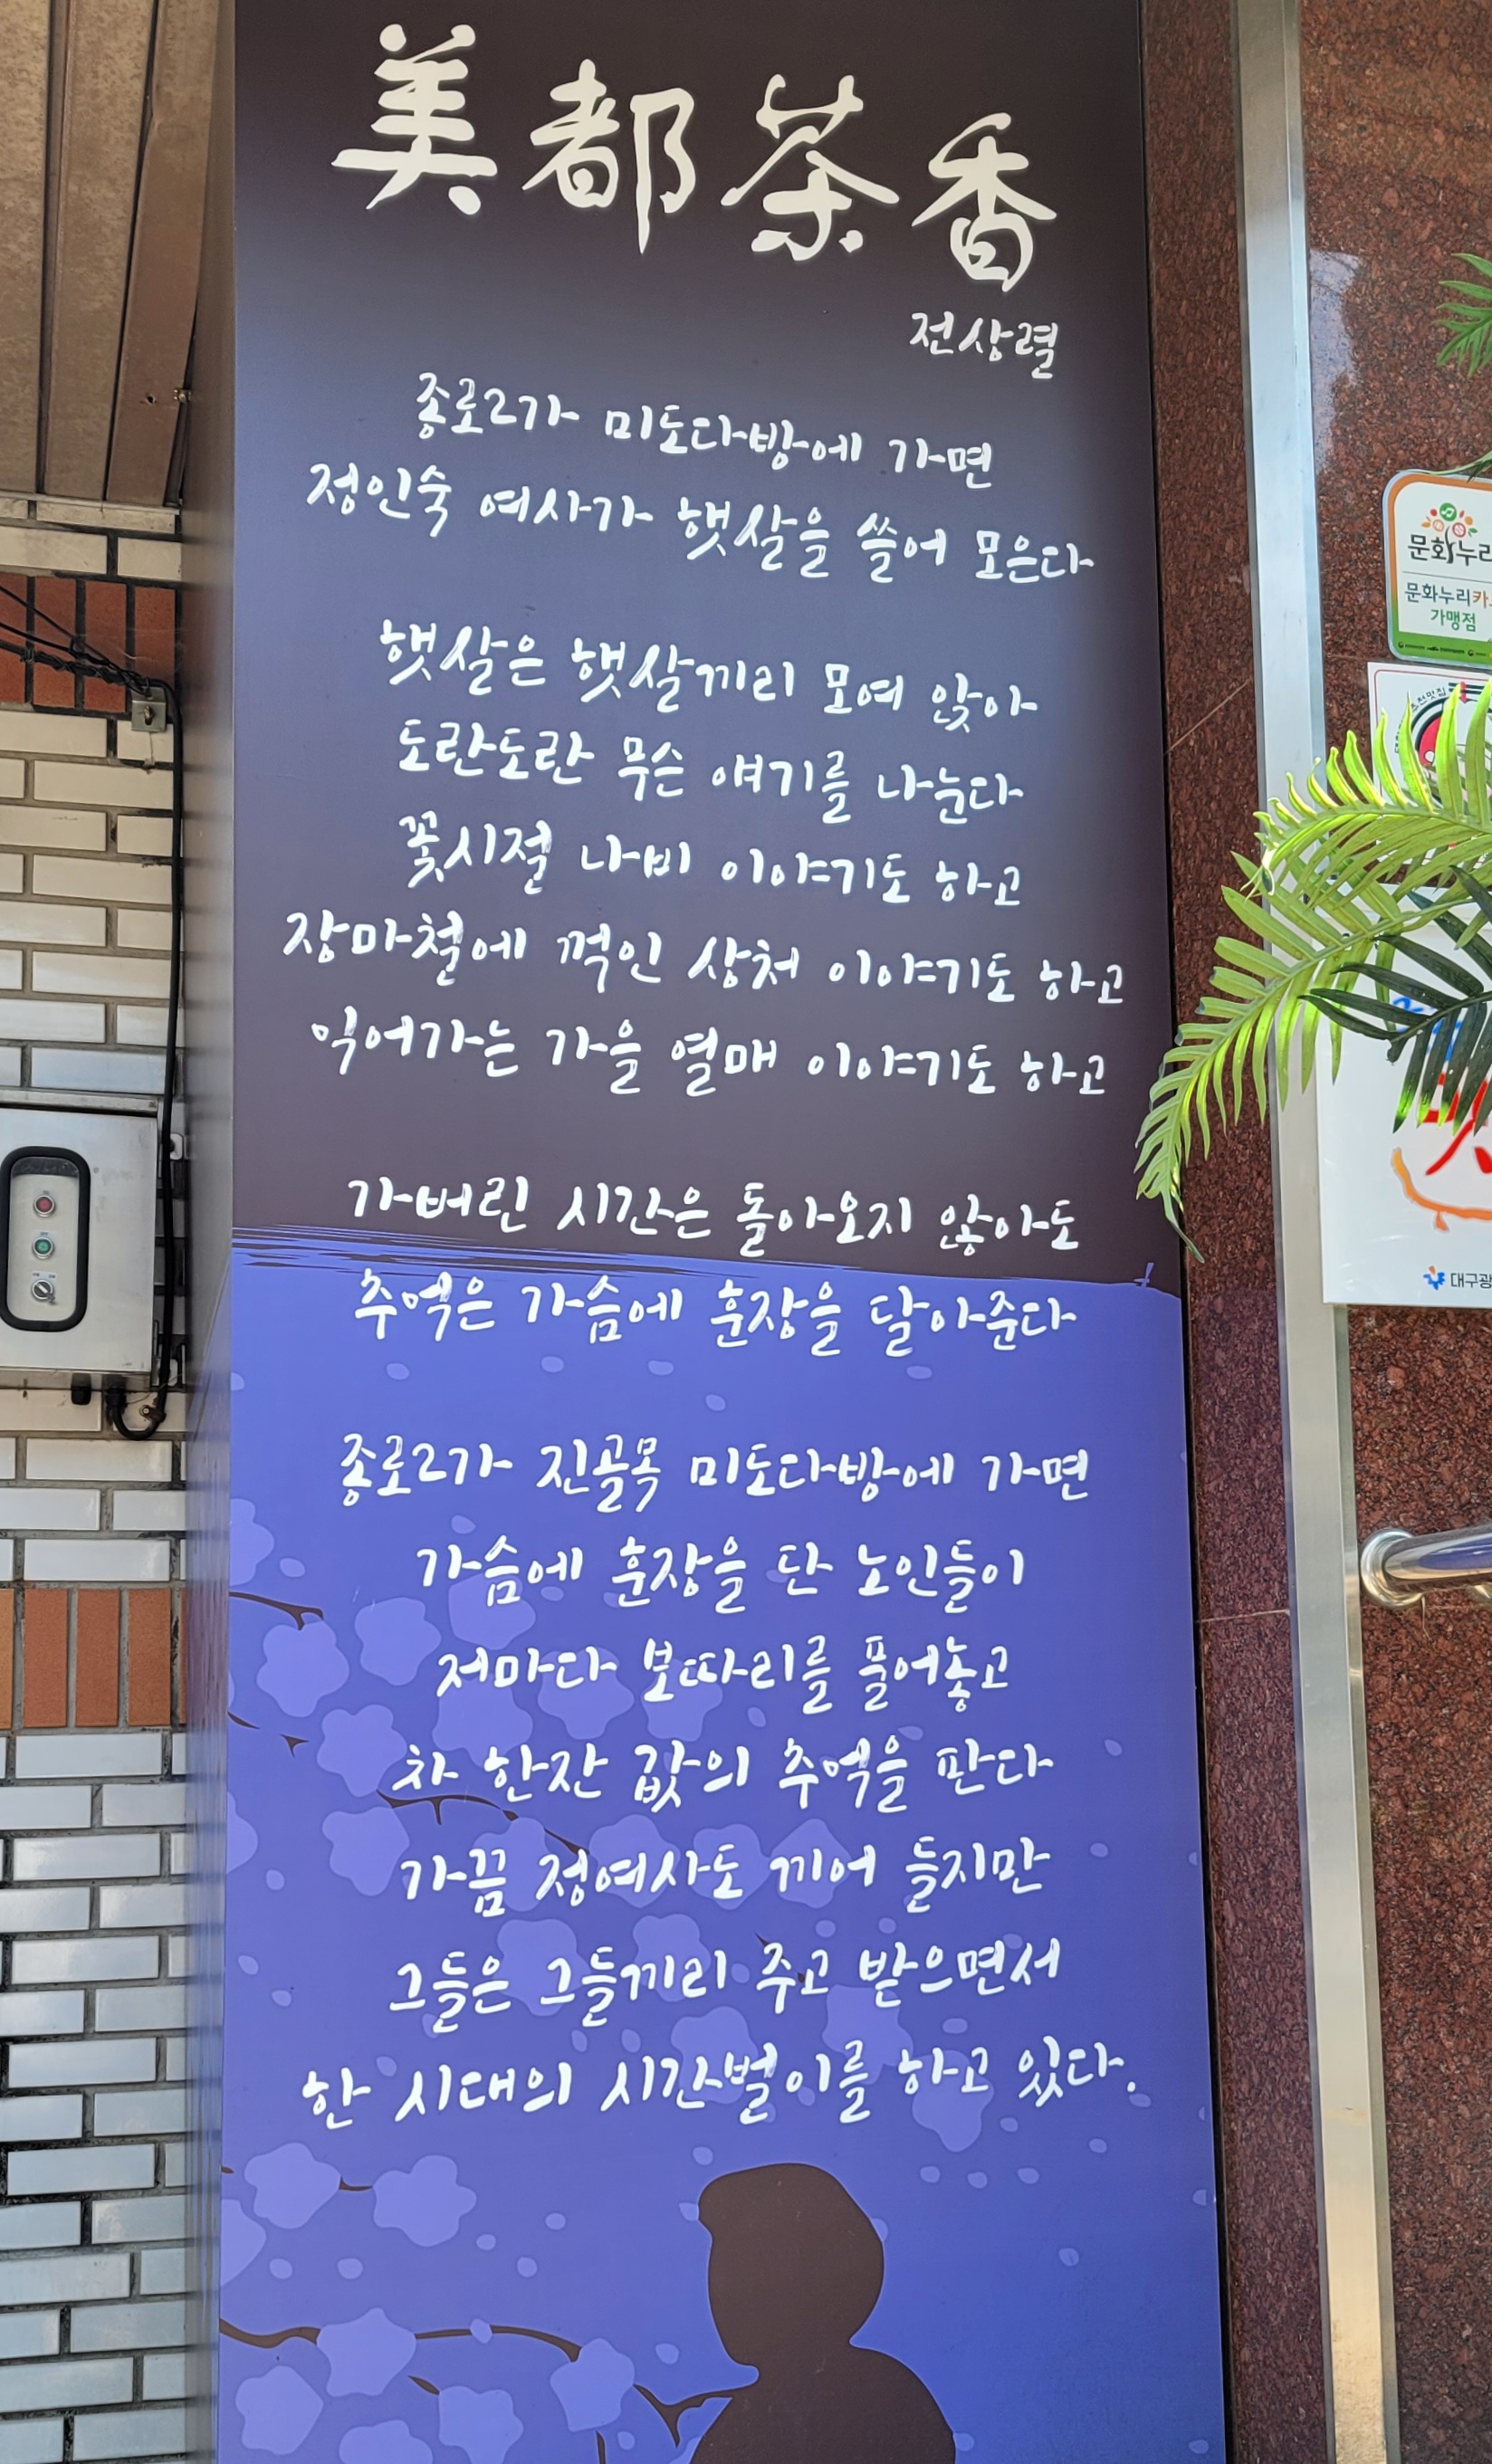 美都茶香
전상렬
종로2가 미도다방에 가면
정인숙 여사가 햇살을 쓸어 모은다
햇살은 햇살끼리 모여 앉아
도란도란 무슨 얘기를 나눈다
꽃시절 나비 이야기도 하고
장마철에 꺽인 상처 이야기도 하고
익어가는 가을 열매 이야기도 하고
가버린 시간은 돌아오지 않아도
추억은 가슴에 훈장을 달아준다
종로2가 진골목 미도다방에 가면
가슴에 훈장을 단 노인들이
저마다 보따리를 풀어놓고
차 한잔 값의 추억을 판다
가끔 정여사도 끼어 들지만
그들은 그들끼리 주고 받으면서
한 시대의 시간벌이를 하고 있다.
문화누리
문화누리카
가맹점
대구광